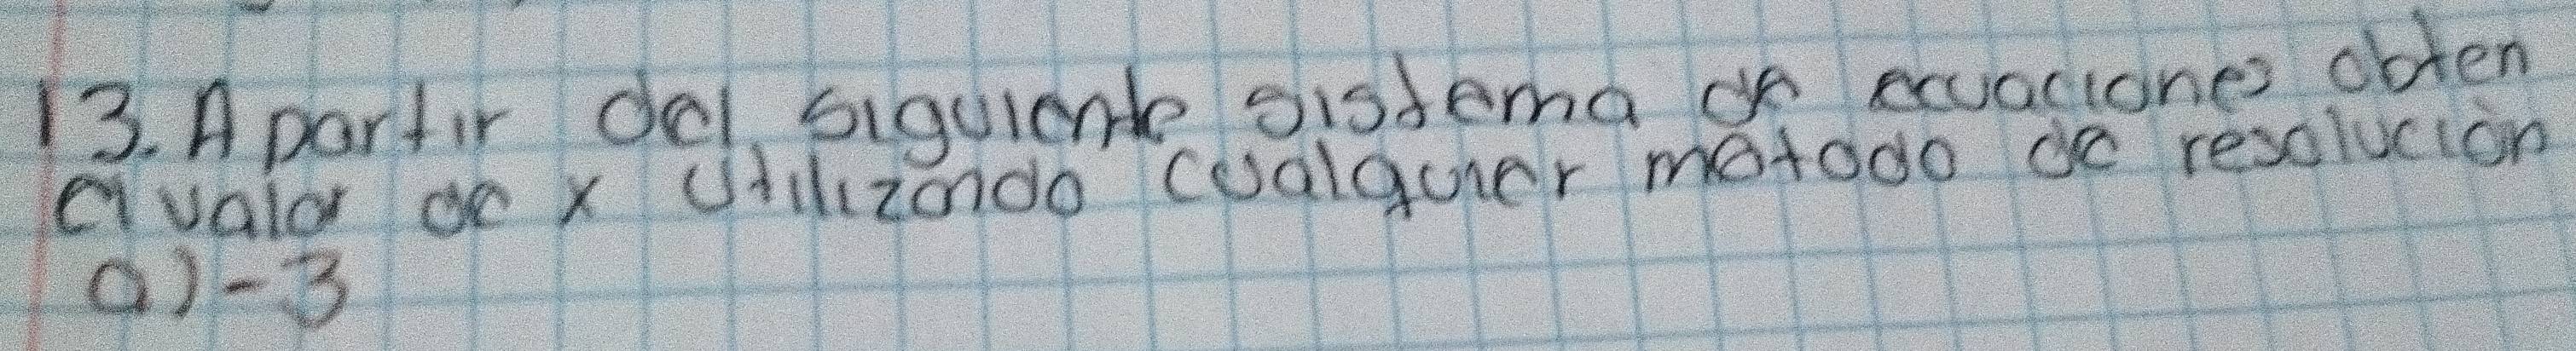 13. A partir del siguiente sistema de ecuaciones obten
el valor de x utilizando cualquier método de resolución
a) -3